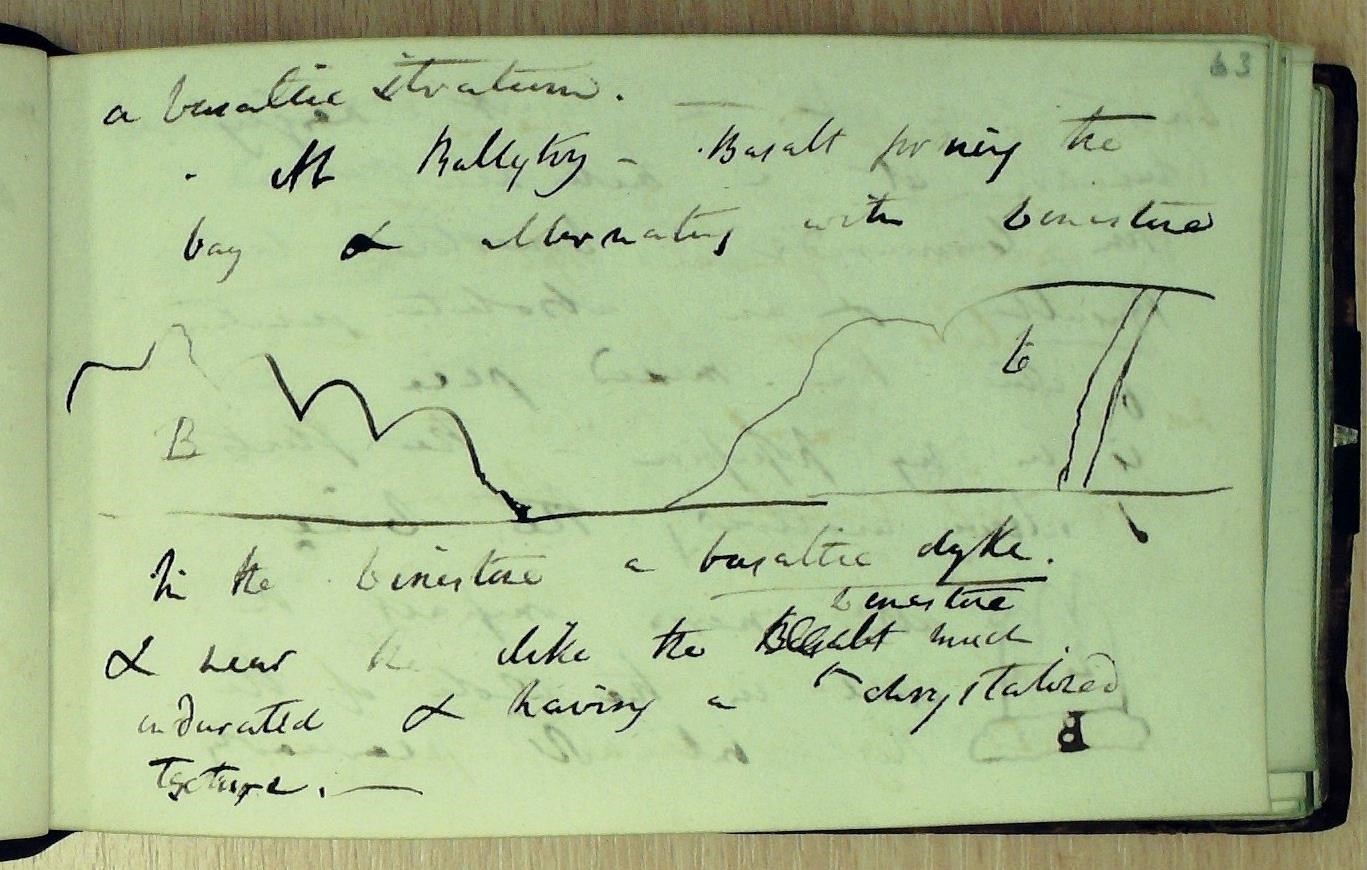 63
a basaltic stratum. —
At Ballytoy - Basalt forming the
bay & alternating with Limestone
B
L
In the Limestone a basaltic dyke.
Limestone
& near the dike the Basalt much
indurated & having a chrystalized
texture. —